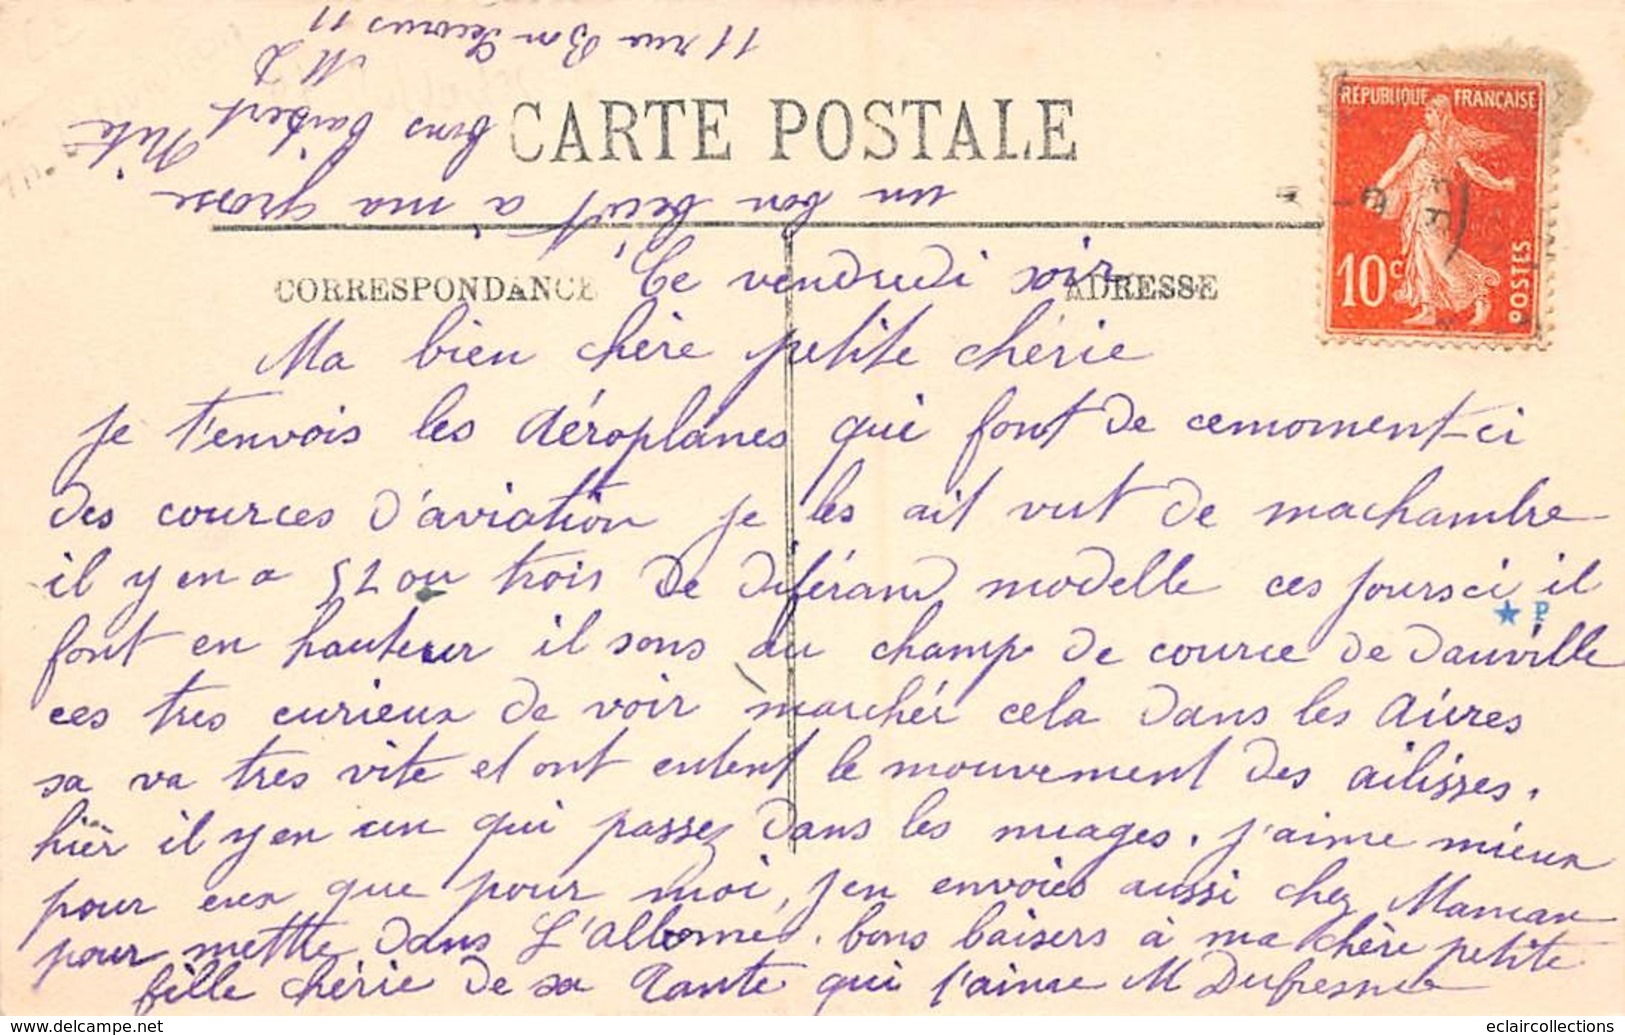 11 rue Bon Secours 11
M D
bons baisert Kiki
un bon bécot à ma grosse
CARTE POSTALE
RÉPUBLIQUE FRANÇAISE
10c POSTES
CORRESPONDANCE
ADRESSE
Ce vendredi soir
Ma bien chère petite chérie
Je t'envois les aéroplanes qui font de cemoment-ci
des cources d'aviation je les ait vut de machambre
il y en a 52 ou trois de diférand modelle ces joursci il
font en hauteur il sons au champ de cource de Dauville
ces tres curieux de voir marcher cela dans les aires
sa va tres vite et ont entent le mouvement des ailisses.
hier il y en un qui passez dans les nuages. j'aime mieux
pour eux que pour moi, j'en envoies aussi chez Maman
pour mettte dans L'albome. bons baisers à ma chère petite
fille chérie de sa Tante qui l'aime M Dufresne
P
www.delcampe.net
eclaircollections